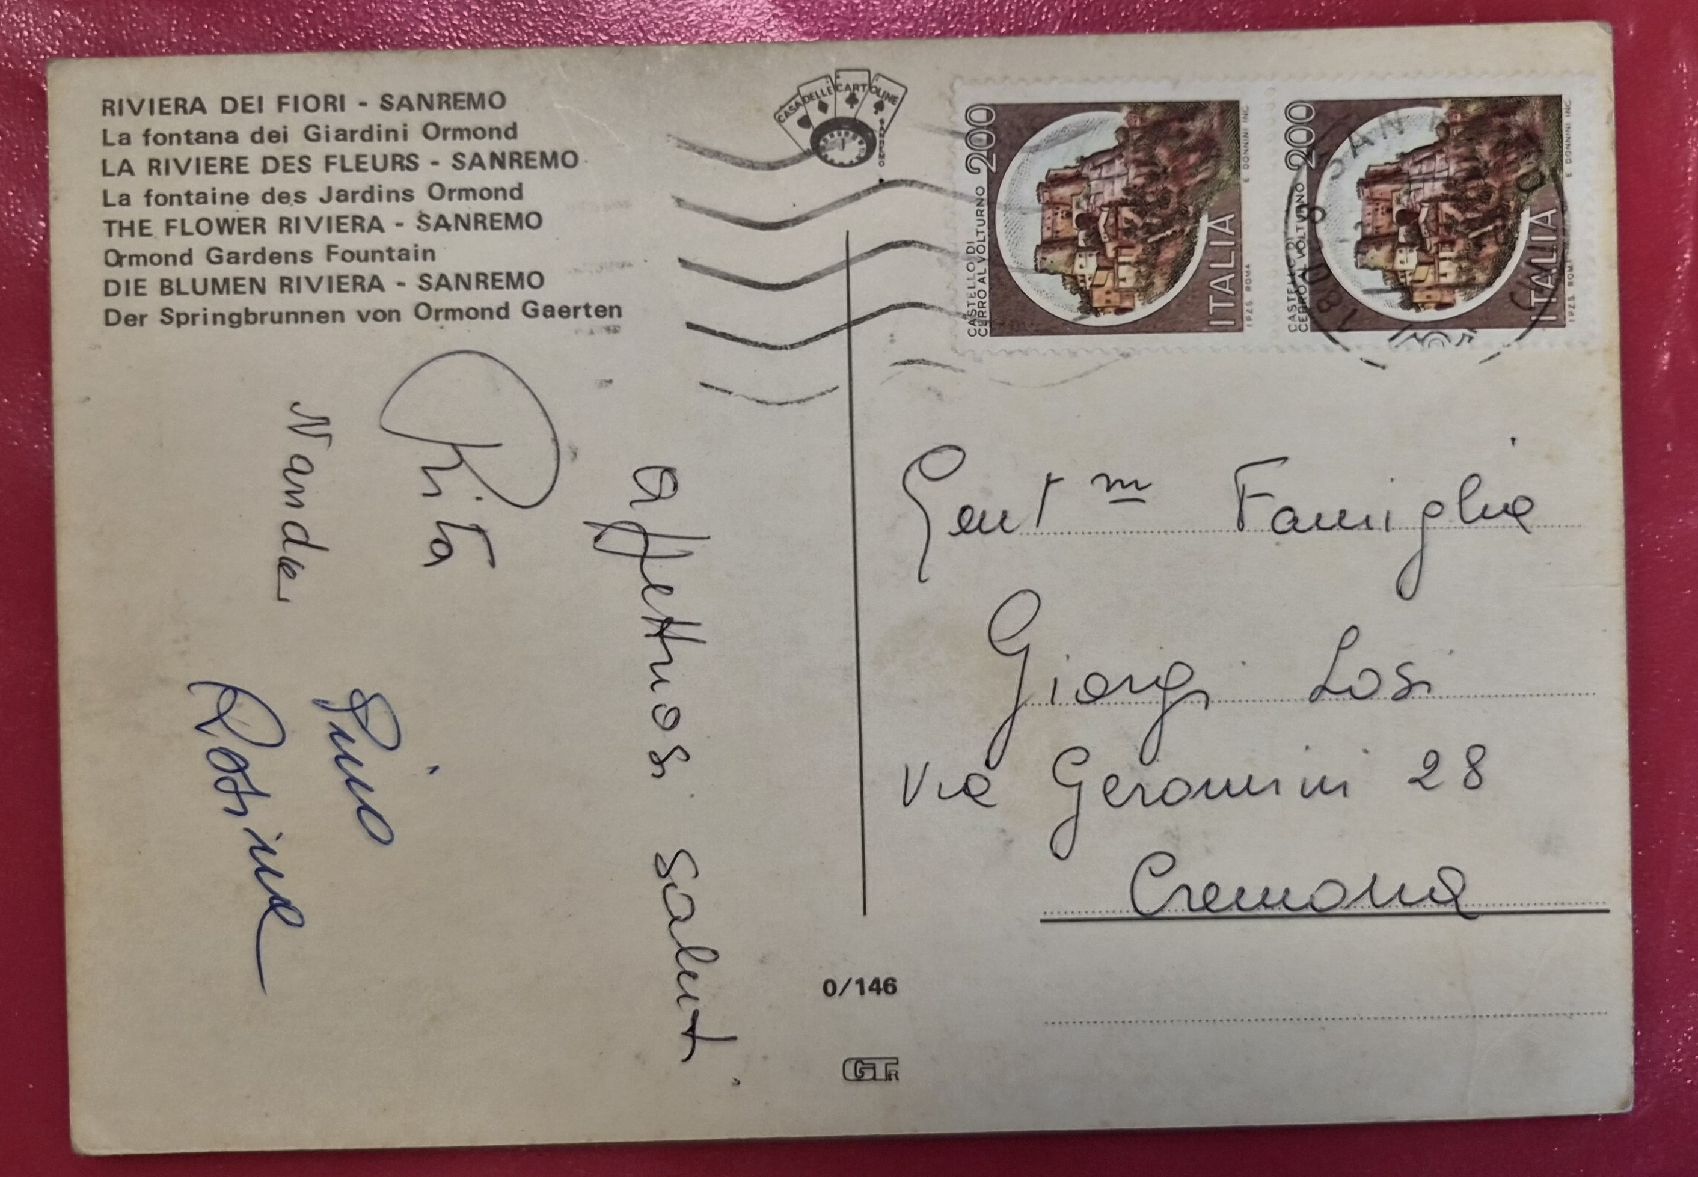 RIVIERA DEI FIORI - SANREMO
La fontana dei Giardini Ormond
LA RIVIERE DES FLEURS - SANREMO
La fontaine des Jardins Ormond
THE FLOWER RIVIERA - SANREMO
Ormond Gardens Fountain
DIE BLUMEN RIVIERA - SANREMO
Der Springbrunnen von Ormond Gaerten
CASA DELLE CARTOLINE
200
CASTELLO DI
CERRO AL VOLTURNO
ITALIA
I.P.Z.S. ROMA
E. DONNINI INC.
200
CASTELLO DI
CERRO AL VOLTURNO
ITALIA
I.P.Z.S. ROMA
E. DONNINI INC.
affettuosi saluti
Rita
Nanda
Pino
Rosina
Gent m Famiglia
Giorgi Losi
Via Geromini 28
Cremona
0/146